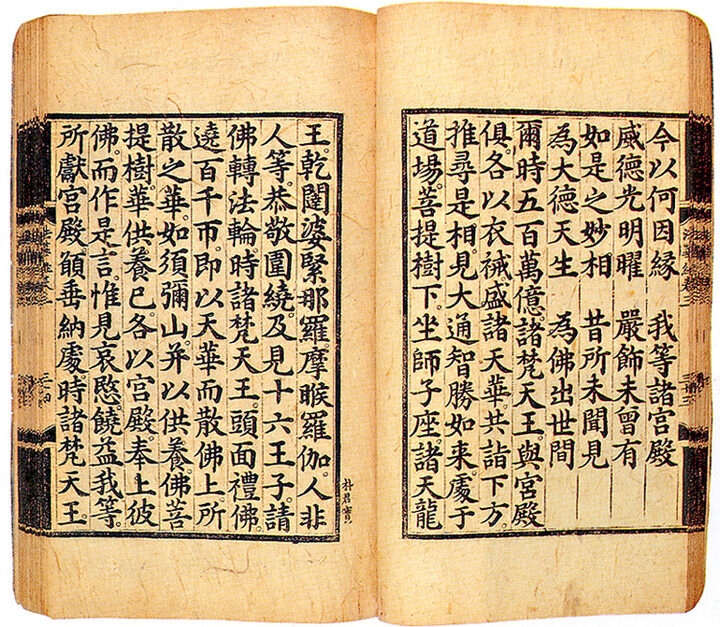 今以何因緣　我等諸宮殿
威德光明曜　嚴飾未曾有
如是之妙相　昔所未聞見
為大德天生　為佛出世間
爾時五百萬億諸梵天王與宮殿
俱。各以衣裓盛諸天華。共詣下方。
推尋是相。見大通智勝如來。處于
道場。菩提樹下。坐師子座。諸天龍
王。乾闥婆。緊那羅。摩睺羅伽。人非
人等。恭敬圍繞。及見十六王子。請
佛轉法輪。時諸梵天王。頭面禮佛。
遶百千帀。即以天華而散佛上。所
散之華。如須彌山。并以供養。佛菩
提樹。華供養已。各以宮殿奉上彼
佛。而作是言。惟見哀愍。饒益我等。
所獻宮殿。願垂納處。時諸梵天王。